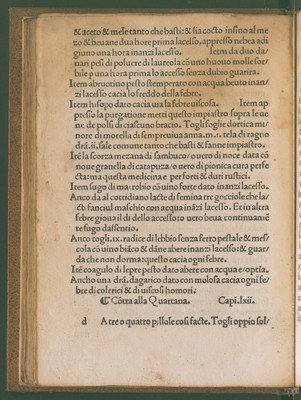 & aceto & mele tanto che basti: & sia cocto insino al me
zo & beuane dua hore prima lacesso, appresso nebea adi
giuno una hora inanzi lacesso. Item da duo da
nari pesi di poluere di laureola cō uno huouo molle sor
bile p una hora prima lo accesso senza dubio guarira.
Item abruotino pesto & temperato con acqua beuto inan/
zi lacesso cacia lo freddo della febre.
Item hisopo dato cacia uia la febre uiscosa. Item ap
presso la purgatione metti questo impiastro sopra le ue
ne de polsi di ciascuno bracio. Togli foglie dortica mi
nore di morella di sempreuiua anna.m.i. tela di ragno
drā.ii. sale comune tanto che basti & fanne impiastro.
Itē la scorza mezana di sambuco/ ouero di noce data cō
noue granella di catapuza/ o uero di pionica cura perfe
cta: ma questa medicina e per forti & duri rustici.
Item sugo di marobio cō uino forte dato inanzi lacesso.
Anco da al cotidiano lacte di femina tre gocciole che la/
cti fanciul maschio con acqua inázi lacesso. Et in altra
febre gioua il di dello accesso: o uero beua continuamē
te sugo dassentio.
Anco togli.ix. radice di lebbio senza ferro pestale & mes/
cola cō uino biāco & dāne abere inanzi lacesso: & guar/
da che non dorma: questo cacia ogni febre.
Itē coagulo di lepre pesto dato abere con acqua e optīa.
Ancho una drā. dagarico dato con molosa cacia ogni fe/
bre di colerici & di uiscosi homori.
¶ Cōtra alla Quartana. Capi.lxii.
d A tre o quatro pillole cosi facte. Togli oppio sol/